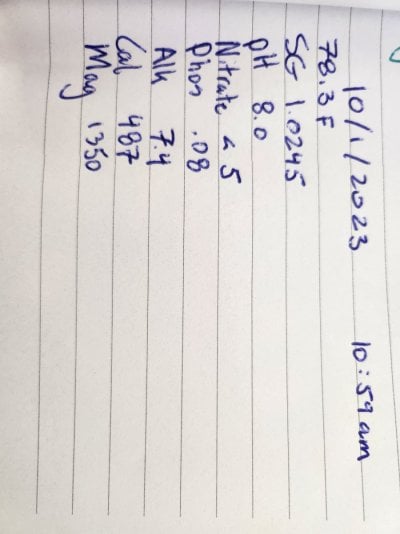 10/1/2023 10:59am
78.3F
SG 1.0245
pH 8.0
Nitrate < 5
Phos .08
Alk 7.4
Cal 487
Mag 1350